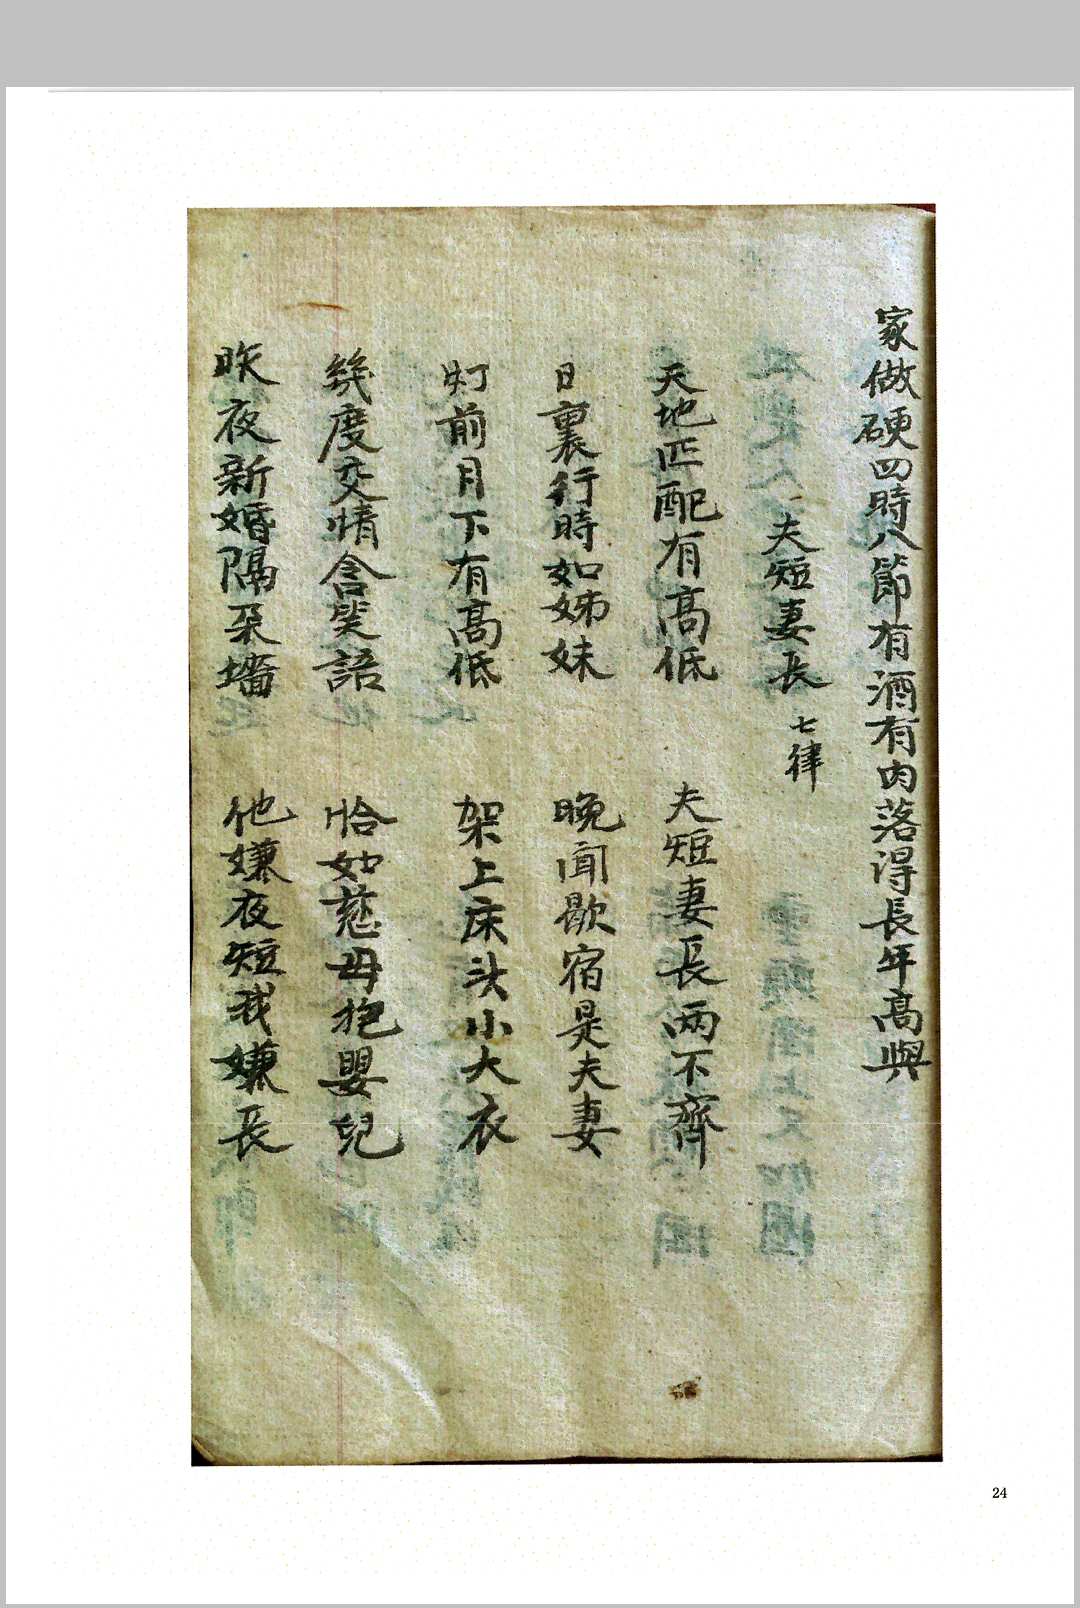 家做硬四時八節有酒有肉落得長年高興
夫短妻長 七律
天地匹配有高低 夫短妻長兩不齊
日裏行時如姊妹 晚間歇宿是夫妻
灯前月下有高低 架上床头小大衣
幾度交情含笑語 恰如慈母抱嬰兒
昨夜新婚隔朶墻 他嫌夜短我嫌長
24